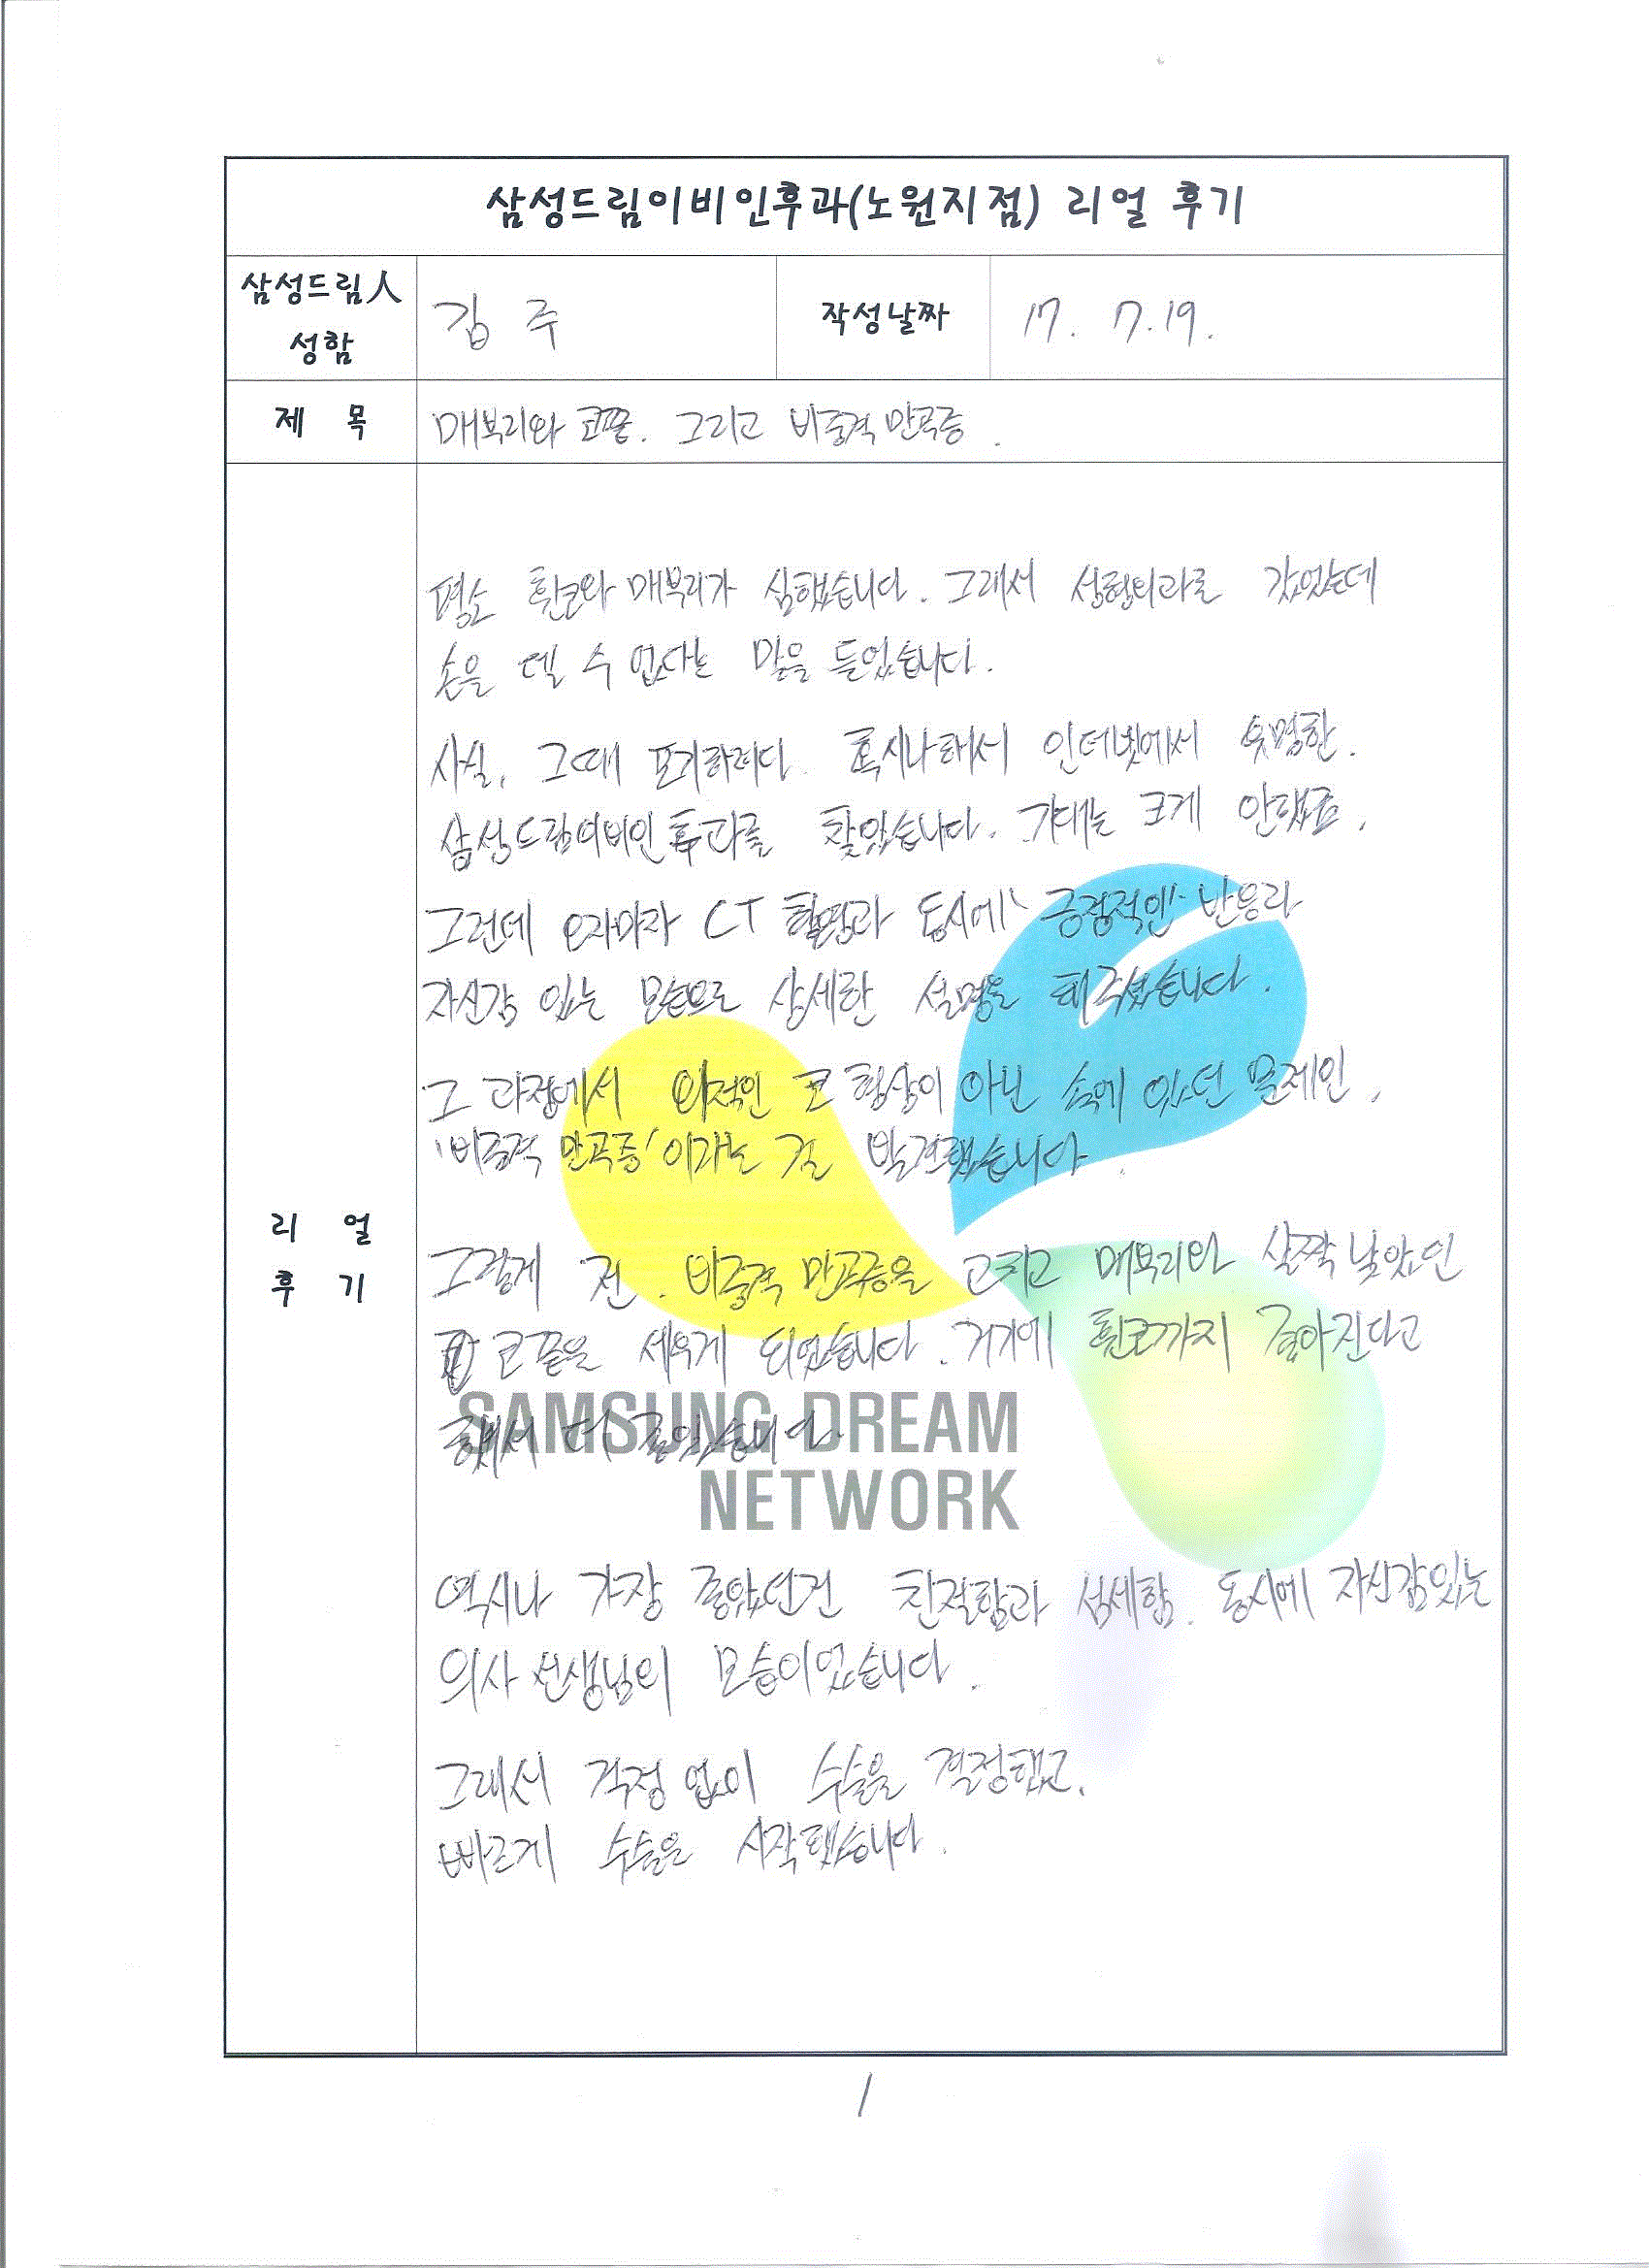 삼성드림이비인후과(노원지점) 리얼 후기
삼성드림人
성함
김 주
작성날짜
17. 7. 19.
제 목
매부리와 코끝. 그리고 비중격 만곡증.
리 얼
후 기
평소 휜코와 매부리가 심했습니다. 그래서 성형외과를 갔었는데
손을 델 수 없다는 말을 들었습니다.
사실, 그때 포기하려다. 혹시나해서 인터넷에서 유명한.
삼성드림이비인후과를 찾았습니다. 기대는 크게 안했죠.
그런데 오자마자 CT 촬영과 동시에 "긍정적인" 반응과
자신감 있는 모습으로 상세한 설명을 해주셨습니다.
그 과정에서 외적인 코 형상이 아닌 속에 있던 문제인,
'비중격 만곡증'이라는 걸 발견했습니다.
그렇게 전. 비중격 만곡증을 고치고 매부리와 살짝 낮았던
코끝을 세우게 되었습니다. 거기에 휜코까지 곧아진다고
해서 더 좋았습니다.
SAMSUNG DREAM
NETWORK
역시나 가장 좋았던건 친절함과 섬세함. 동시에 자신감있는
의사 선생님의 모습이었습니다.
그래서 걱정 없이 수술을 결정했고.
빠르게 수술을 시작했습니다.
1